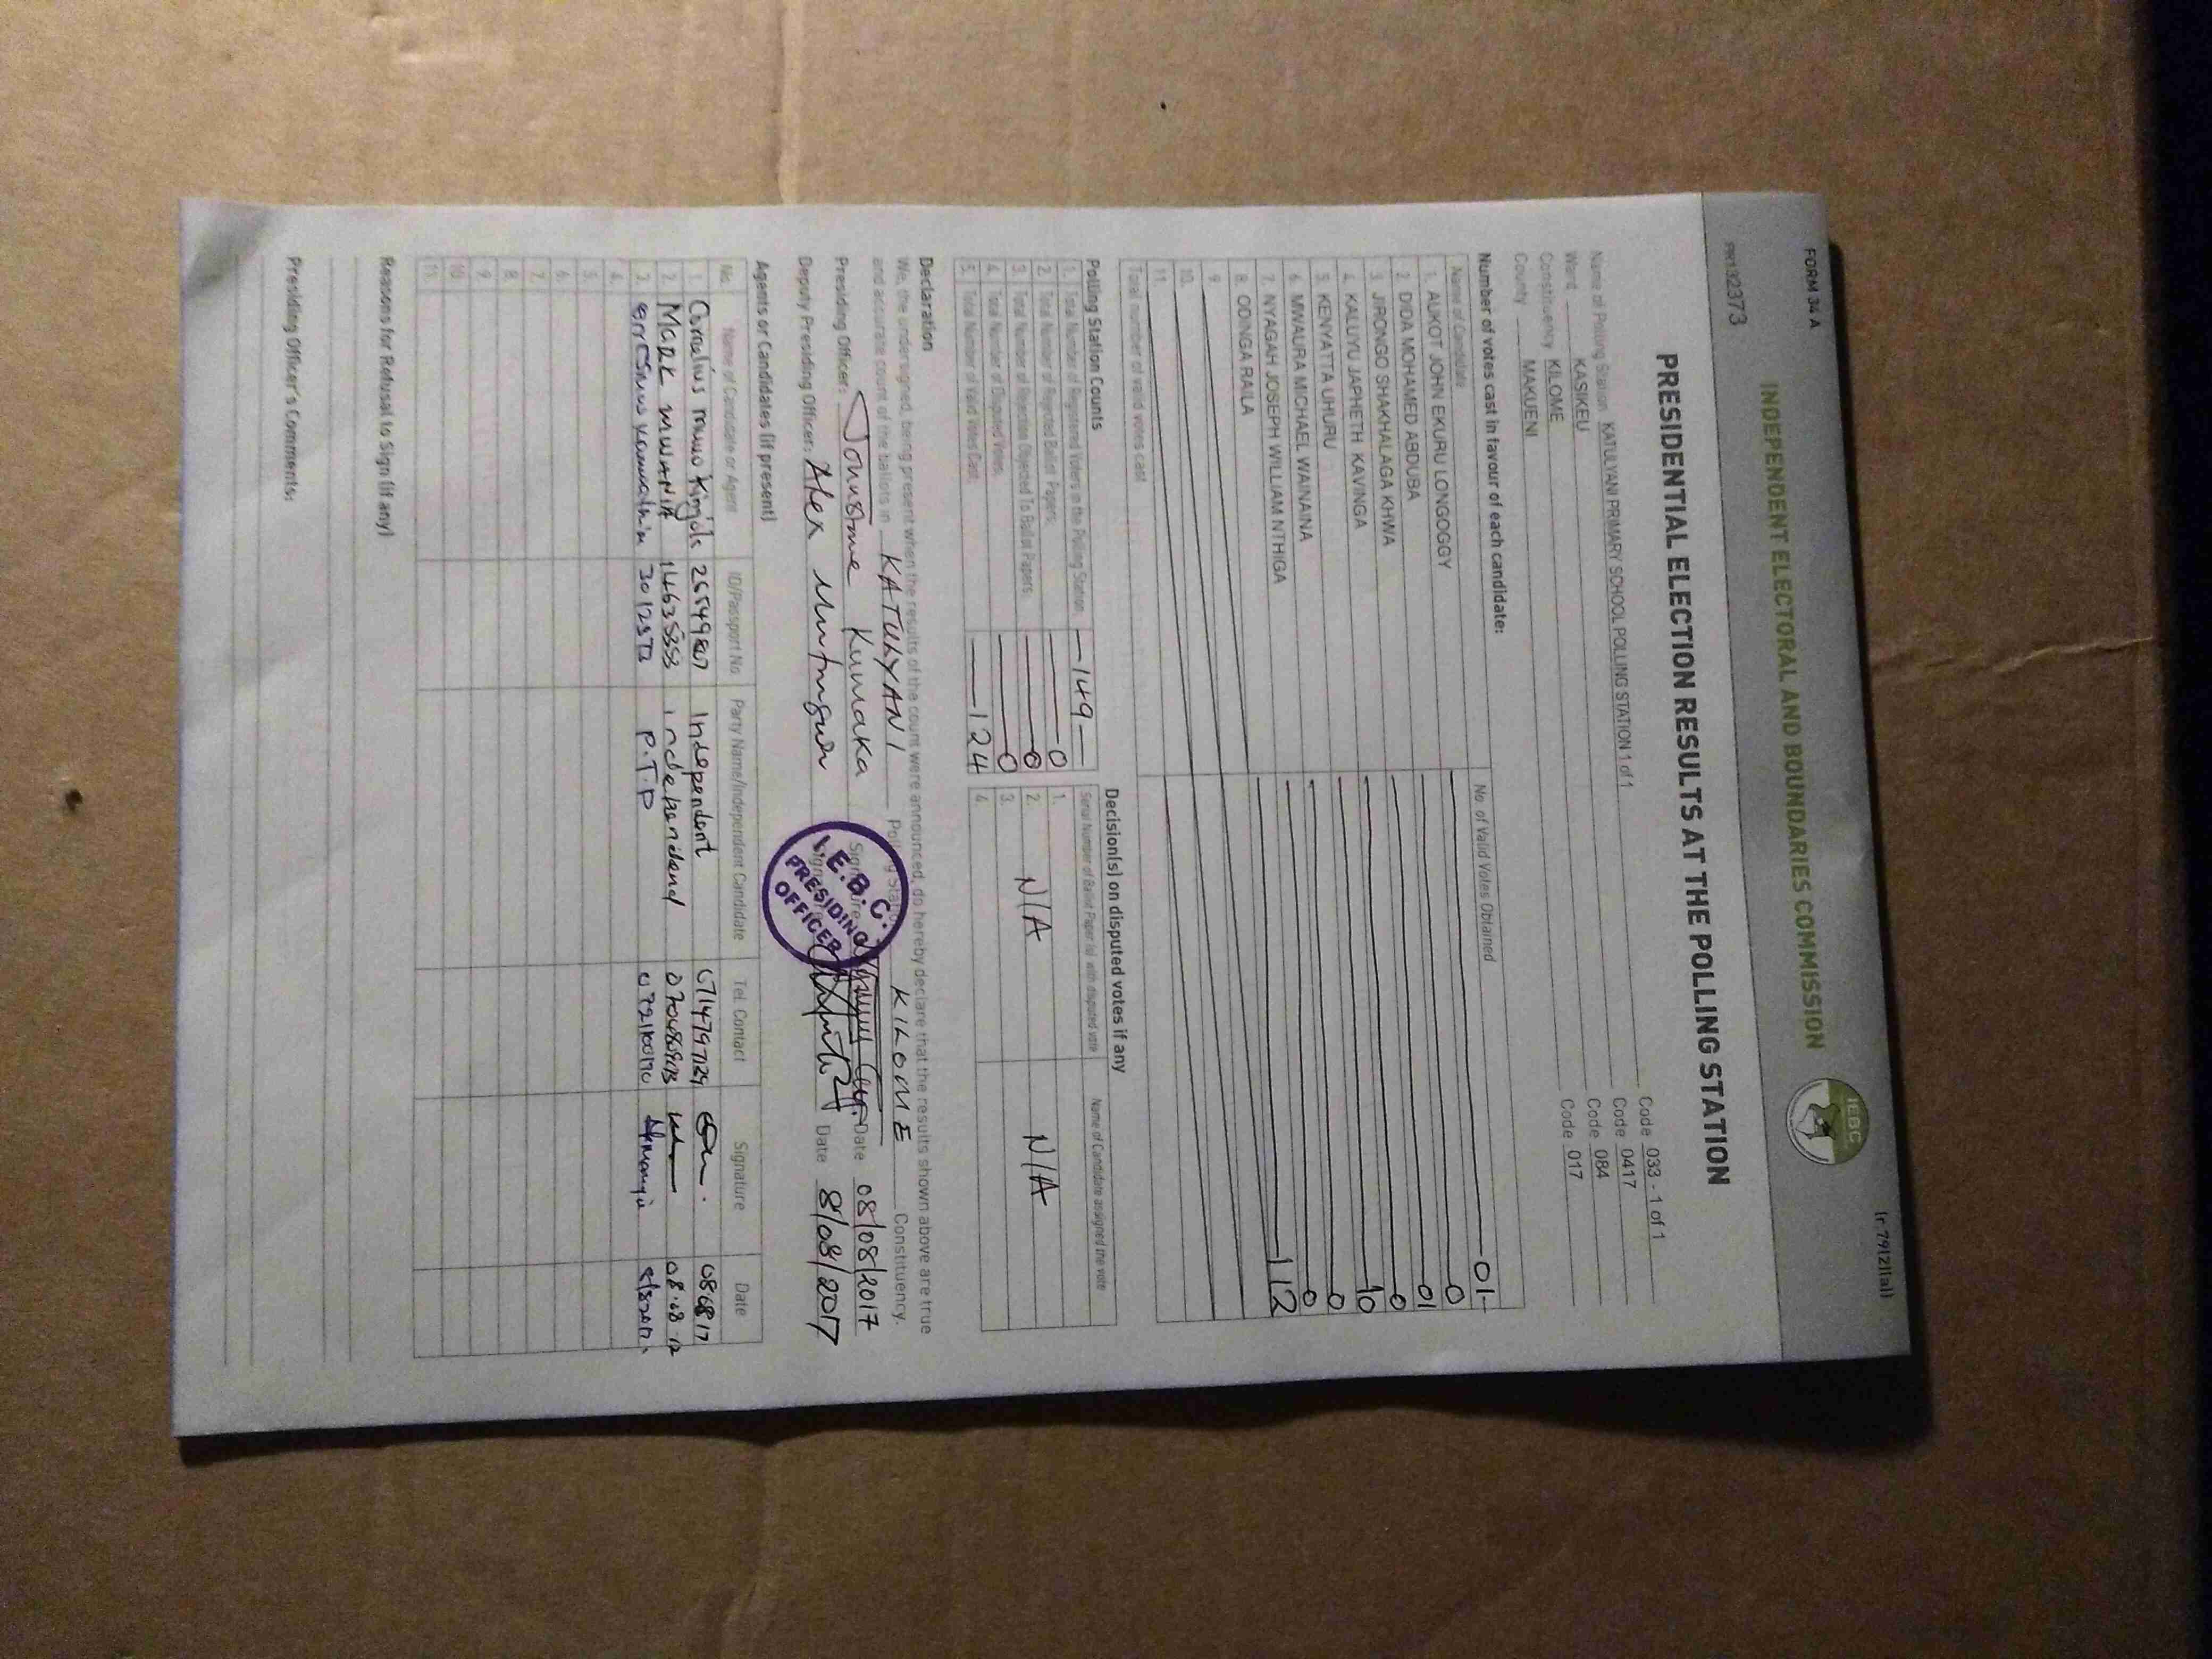 FORM 34 A
(r 79(2)(a))
INDEPENDENT ELECTORAL AND BOUNDARIES COMMISSION
IEBC
PR132373
PRESIDENTIAL ELECTION RESULTS AT THE POLLING STATION
Name of Polling Station KATULYANI PRIMARY SCHOOL POLLING STATION 1 of 1 Code 033 - 1 of 1
Ward KASIKEU Code 0417
Constituency KILOME Code 084
County MAKUENI Code 017
Number of votes cast in favour of each candidate:
Name of Candidate No. of Valid Votes Obtained
1. AUKOT JOHN EKURU LONGOGGY 01
2. DIDA MOHAMED ABDUBA 0
3. JIRONGO SHAKHALAGA KHWA 01
4. KALUYU JAPHETH KAVINGA 0
5. KENYATTA UHURU 10
6. MWAURA MICHAEL WAINAINA 0
7. NYAGAH JOSEPH WILLIAM NTHIGA 0
8. ODINGA RAILA 112
9.
10.
11.
Total number of valid votes cast
Polling Station Counts
1. Total Number of Registered Voters in the Polling Station 149
2. Total Number of Rejected Ballot Papers. 0
3. Total Number of Rejection Objected To Ballot Papers. 0
4. Total Number of Disputed Votes. 0
5. Total Number of Valid Votes Cast. 124
Decision(s) on disputed votes if any
Serial Number of Ballot Paper (s) with disputed vote Name of Candidate assigned the vote
1.
2. N/A N/A
3.
4.
Declaration
We, the undersigned, being present when the results of the count were announced, do hereby declare that the results shown above are true
and accurate count of the ballots in KATULYANI Polling Station KILOME Constituency.
Presiding Officer: Johnstone Kumaka Signature Date 08/08/2017
Deputy Presiding Officer: Alex Date 8/08/2017
I.E.B.C.
PRESIDING
OFFICER
Agents or Candidates (if present)
No. Name of Candidate or Agent ID/Passport No Party Name/Independent Candidate Tel. Contact Signature Date
1. Cornelius Independent 0714797124
2. Mark Independend 08.08.17
3. 30123 P.T.P
4.
5.
6.
7.
8.
9.
10.
11.
Reasons for Refusal to Sign (if any)
Presiding Officer's Comments: